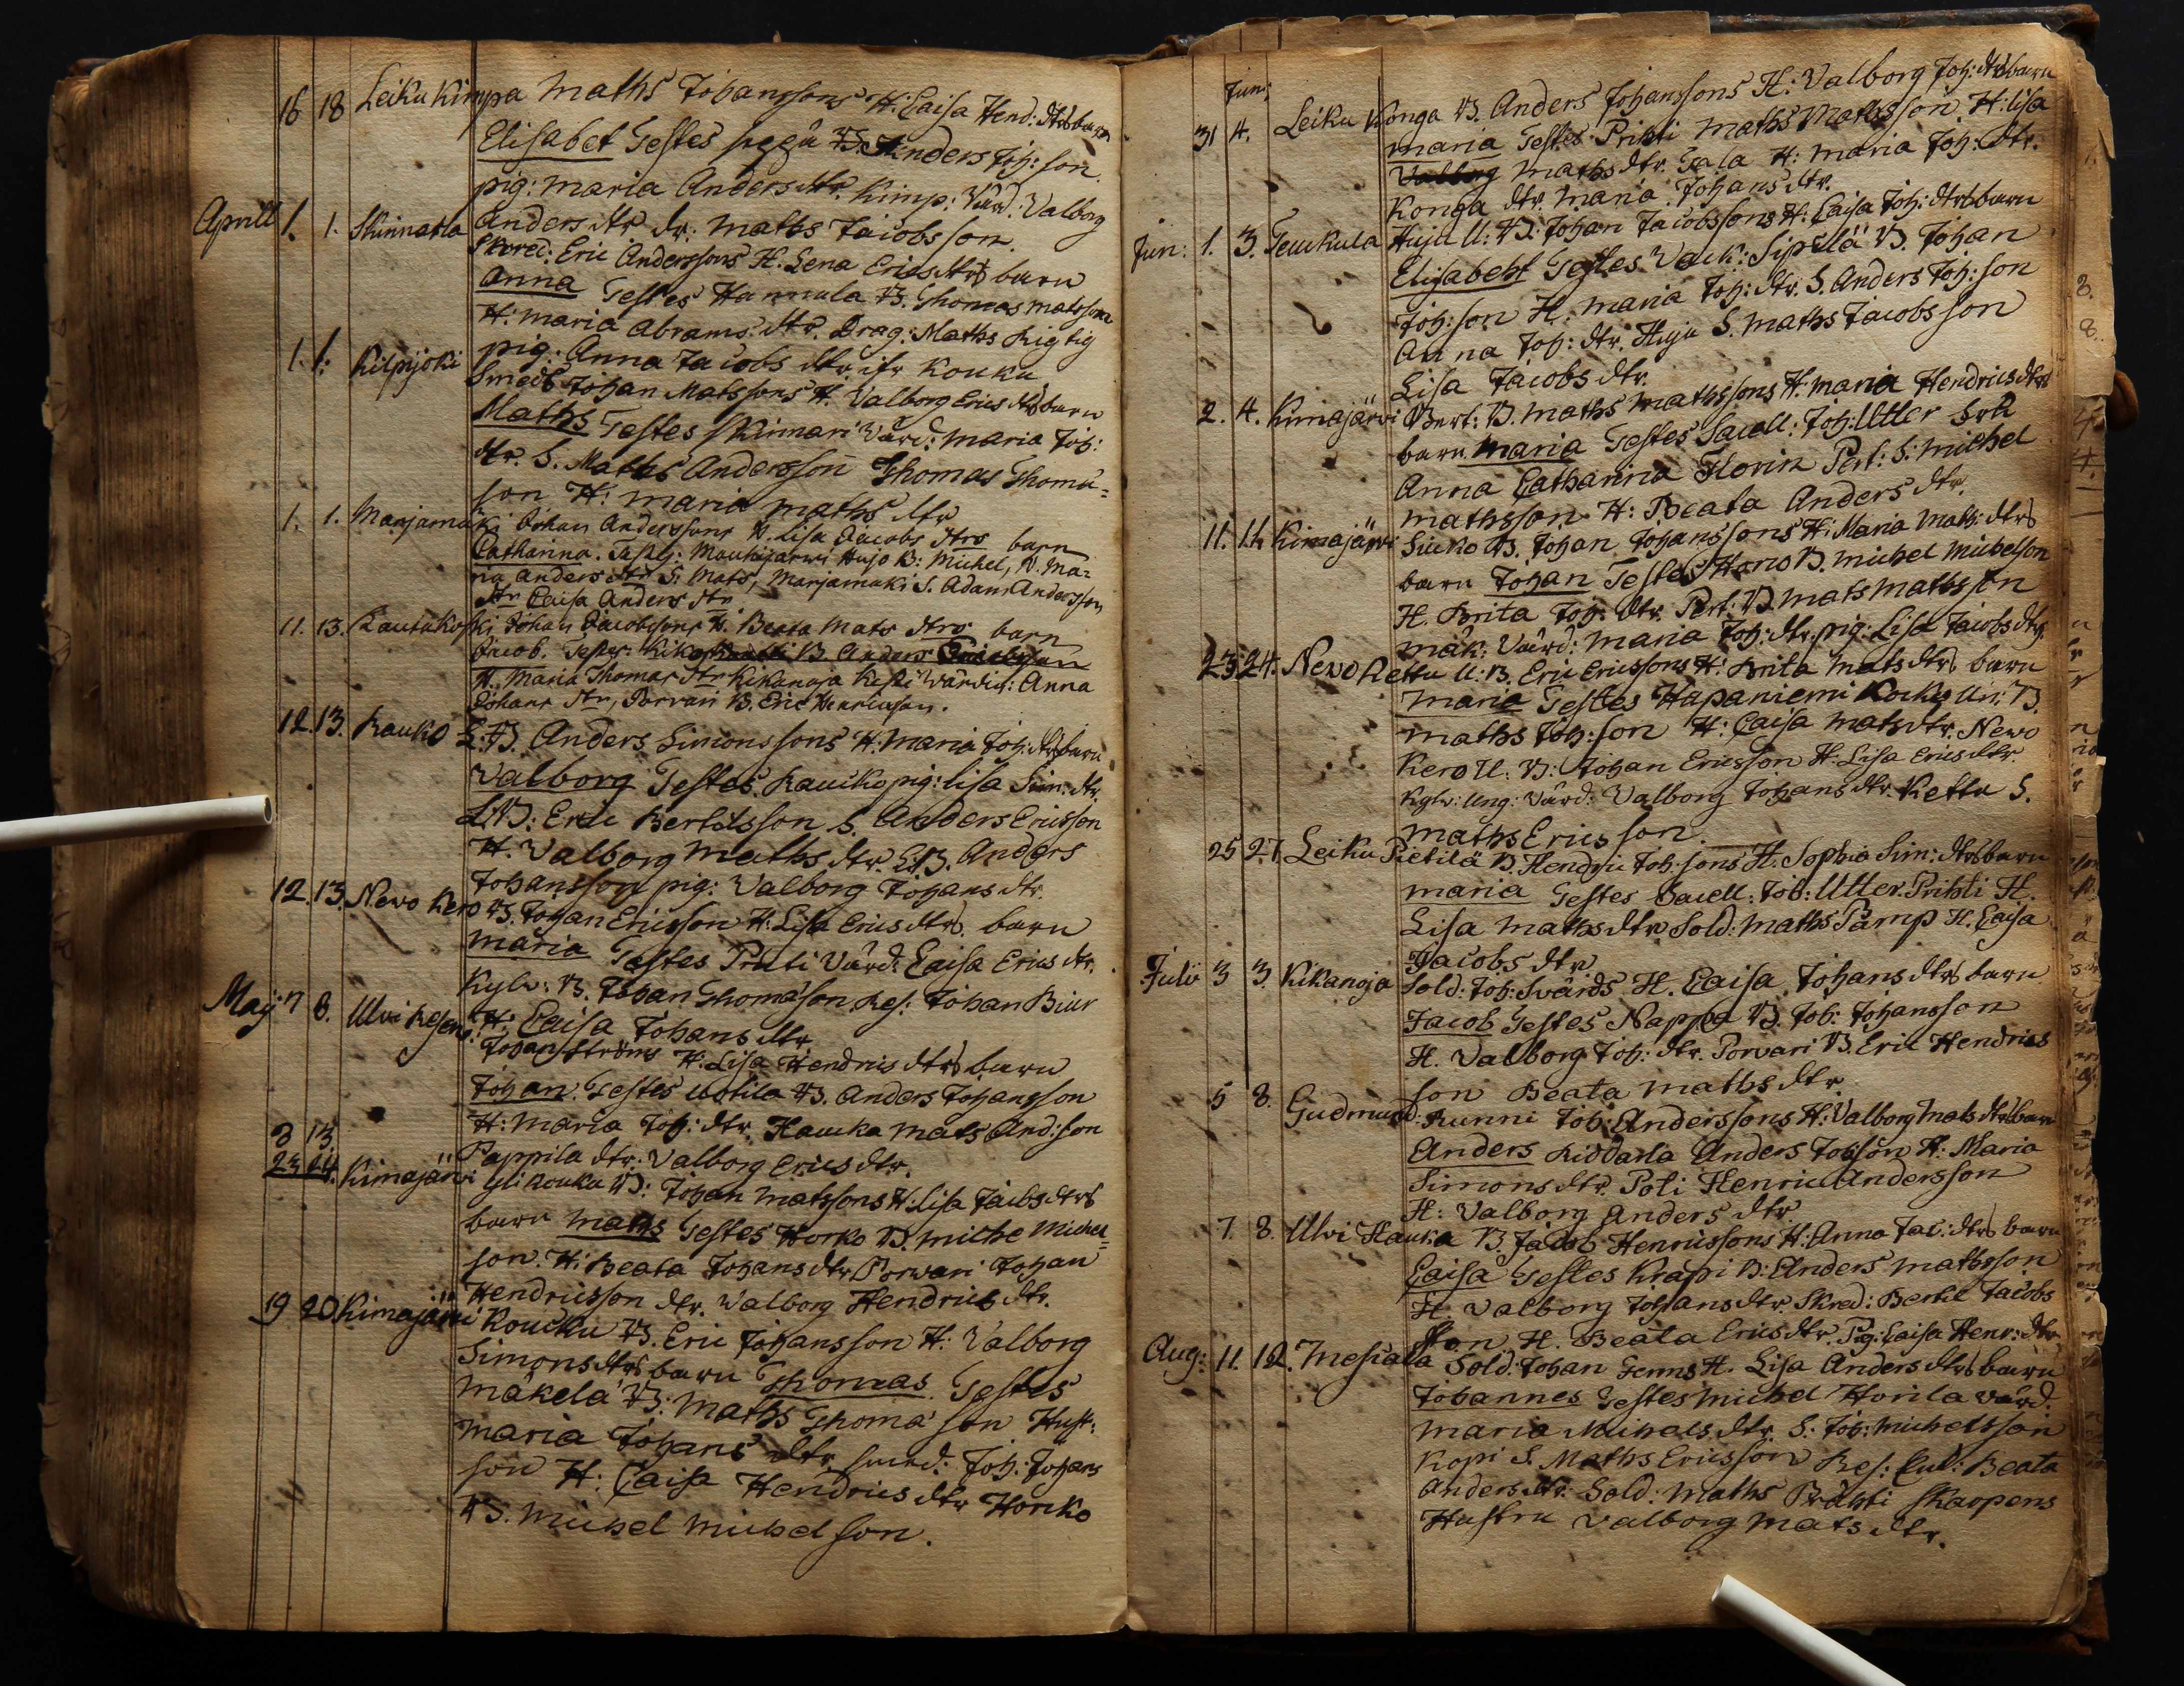 16 18 Leiku Kimpa Maths Johanssons H: Caisa Hend: dtrs barn
Elisabet Testes B. Anders Joh: son
pig: Maria Anders dtr. Kimp: Värd: Valborg
Anders dtr dr: Maths Jacobsson.
Aprill 1. 1. Skinnarla Skred: Eric Anderssons H. Lena Ericsdtrs barn
Anna Testes Hannula B. Thomas Matsson
H: Maria Abrams dtr. Drag: Maths Rigtig
pig: Anna Jacobs dtr Kouku
1. 1. Kilpijoki Smeds Johan Matssons H. Valborg Erics dtrs barn
Maths Testes Skinnari Värd: Maria Joh:
dtr. S. Maths Andersson Thomas Thoma=
son H: Maria Maths dtr
1. 1. Marjamäki Johan Anderssons H. Lisa Jacobs dtrs barn
Catharina. Test: Mauhijärwi Hujo B: Michel, H. Ma=
ria Anders dtr S. Mats, Marjamäki S. Adam Andersson
dtr Caisa Anders dtr
11. 13. Rautakoski Johan Jacobssons H. Beata Mats dtrs barn
Jacob. Testes: B. Anders
H. Maria Thomas dtr Kikanoja Kesti Värdin: Anna
Johans dtr, Porvari B. Eric Henricsson.
12. 13. Rauko L: B. Anders Simonssons H: Maria Joh: dtrs barn
Valborg Testes. Raucko pig: Lisa Sim: dtr.
L: B: Eric Bertilsson S. Anders Ericsson
H. Valborg Maths dtr. L: B. Anders
Johansson pig: Valborg Johans dtr.
12. 13. Newo Kero B. Johan Ericsson H: Lisa Erics dtrs barn
Maria Testes Pruti Värd: Caisa Erics dtr.
Kylw: B. Johan Thomason Res: Johan Biur
H: Caisa Johans dtr
Maij 7 8. Ulvi Johan Ströms H: Lisa Hendrics dtrs barn
Johan. Testes Uotila B. Anders Johansson
H: Maria Joh: dtr. Haucka Mats And: son
Pappila dtr: Valborg Erics dtr.
8 13
23 24. Kimajärwi Yli Kouku B: Johan Matssons H. Lisa Jacobs dtrs
barn Maths Testes Horko B. Miche Michel=
son. H. Beata Johans dtr Porwari Johan
Hendricsson dtr. Valborg Hendrics dtr.
19 20 Kimajärwi Koucku B. Eric Johansson H: Valborg
Simons dtrs barn Thomas. Testes
Mäkelä B: Maths Thoma son Hust:
Maria Johans dtr Smed: Joh: Johans
son H: Caisa Hendrics dtr Horiko
B. Michel Michelson.
Juni
31 4. Leiku Konga B. Anders Johanssons H: Valborg Joh: dtrs barn
Maria Testes Prihti Maths Mathsson H: Lisa
Valborg Maths dtr. Tala H: Maria Joh: dtr.
Konga dtr. Maria Johans dtr.
Jun: 1. 3. Teuckula Huju U: B: Johan Jacobssons H: Caisa Joh: dtrs barn
Elisabeht Testes Wack: Sipilä B. Johan
Joh: son H. Maria Joh: dtr. S. Anders Joh: son
Anna Joh: dtr. Huju S. Maths Jacobsson
Lisa Jacobs dtr.
2. 4. Kimajärvi Pert: B. Maths Mathssons H: Maria Hendrics dtrs
barn Maria Testes Sacell: Joh: Utter
Anna Catharina Florin Pert: S: Michel
Mathsson H: Beata Anders dtr.
11. 11. Kimajärwi Sucko B. Johan Johanssons H: Maria Math: dtrs
barn Johan Testes Horio B. Michel Michelson
H. Brita Joh: dtr. Pert: B. Mats Mathsson
Mäk: Värd: Maria Joh: dtr. pig: Lisa Jacobs dtr.
23. 24. Newo Kettu U: B. Eric Ericssons H: Brita Mats dtrs barn
Maria Testes Hapaniemi Kocki Uti: B.
Maths Joh: son H: Caisa Mats dtr. Newo
Kero U: B: Johan Ericsson H. Lisa Erics dtr.
Kylw: Ung: Värd: Valborg Johans dtr. Kettu S.
Maths Ericsson.
25 27. Leiku Pietilä B. Hendric Joh: sons H. Sophia Sim: dtrs barn
Maria Testes Sacell: Joh: Utter. Prihti H.
Lisa Maths dtr Sold: Maths Pamp H. Caisa
Jacobs dtr
Julii 3 3. Kikanoja Sold: Joh: Svärds H. Caisa Johans dtrs barn
Jacob Testes Nappa B. Joh: Johansson
H. Valborg Joh: dtr. Porvari B. Eric Hendrics
son Beata Maths dtr
5 8. Gudmund: Runni Joh: Anderssons H: Valborg Mats dtrs barn
Anders Riddarla Anders Johsson H: Maria
Simons dtr. Poti Henric Andersson
H: Valborg Anders dtr
7. 8. Ulvi Hauka B. Jacob Henricssons H: Anna Jac: dtrs barn
Caisa Testes Krapi B: Anders Mathsson
H. Valborg Johans dtr. Skred: Bertil Jacobs
son H. Beata Erics dtr. Pig: Caisa Henr: dtr
Aug: 11. 12. Mesiala Sold: Johan H. Lisa Anders dtrs barn
Johannes Testes Michel Horila Värd.
Maria Michels dtr. S: Joh: Michelsson
Kopi S. Maths Ericsson Res: Beata
Anders dtr: Sold: Maths Prähti Skarpens
Hustru Valborg Mats dtr.